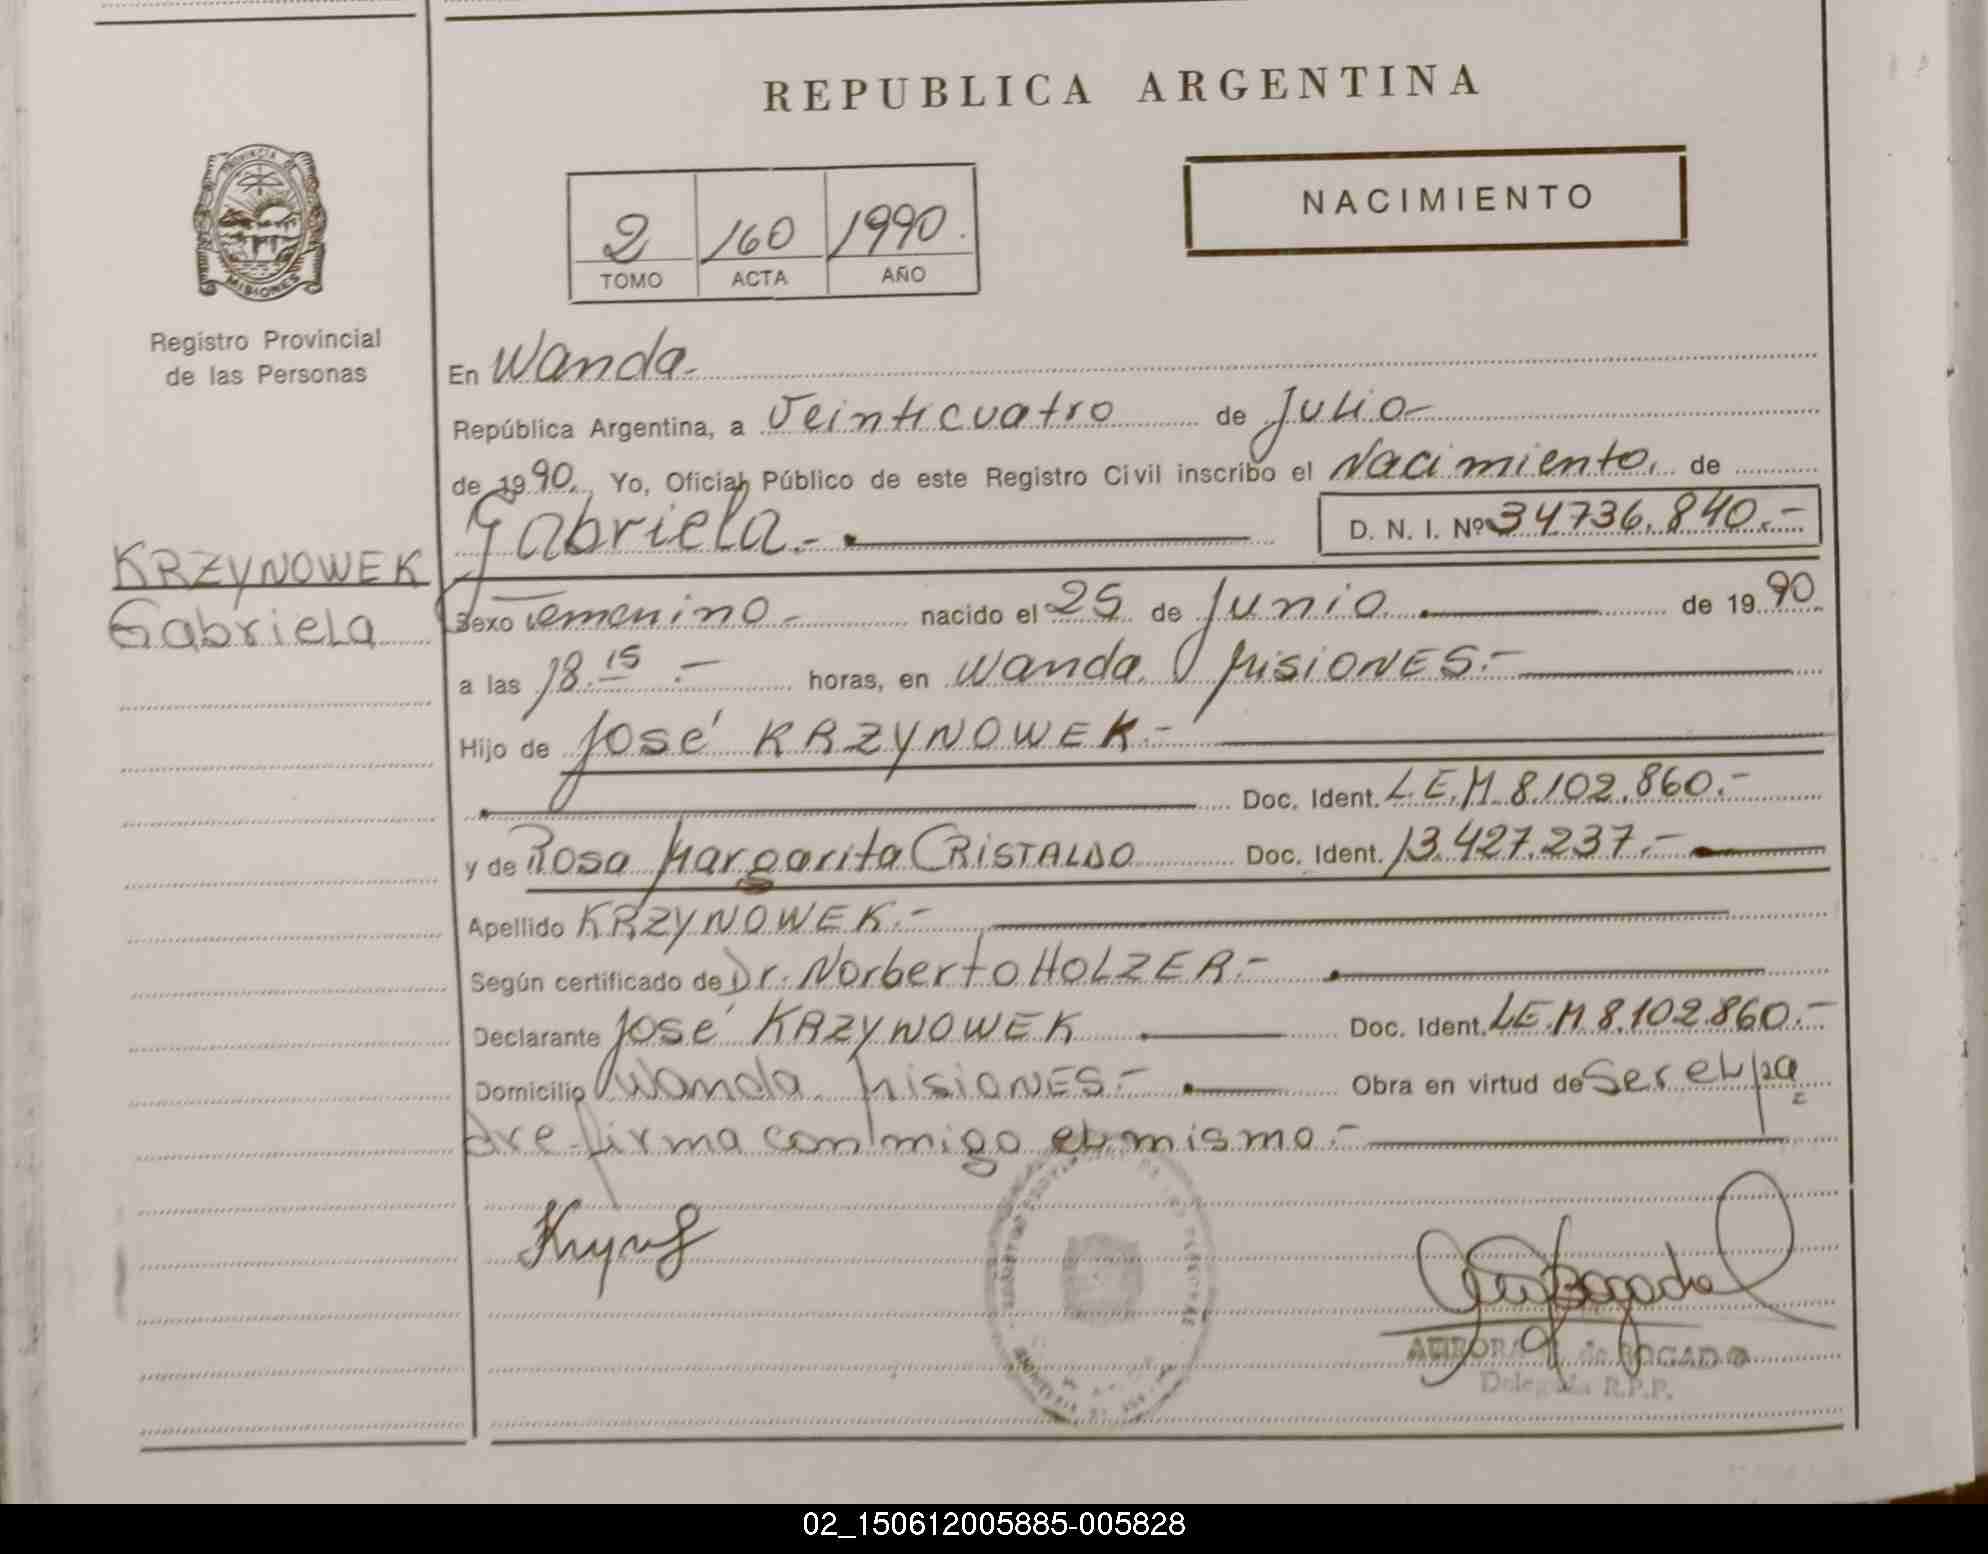 REPUBLICA ARGENTINA
NACIMIENTO
2 160 1990.
TOMO ACTA AÑO
PROVINCIA DE
MISIONES
Registro Provincial
de las Personas
En Wanda.-
República Argentina, a Veinticuatro de Julio-
de 1990. Yo, Oficial Público de este Registro Civil inscribo el Nacimiento. de
Gabriela.- D. N. I. Nº 34736.840.-
KRZYNOWEK
Gabriela
Sexo Femenino.- nacido el 25 de Junio de 1990
a las 18.15 .- horas, en Wanda Misiones.-
Hijo de José KRZYNOWEK.-
Doc. Ident. L.E.M. 8.102.860.-
y de Rosa Margarita CRISTALDO Doc. Ident. 13.427.237.-
Apellido KRZYNOWEK.-
Según certificado de Dr. Norberto HOLZER.-
Declarante José KRZYNOWEK Doc. Ident. L.E.M 8.102.860.-
Domicilio Wanda Misiones.- Obra en virtud de Ser el pa
dre-firma conmigo el mismo.-
AURORA de BOGADO
Delegada R.P.P.
02_150612005885-005828